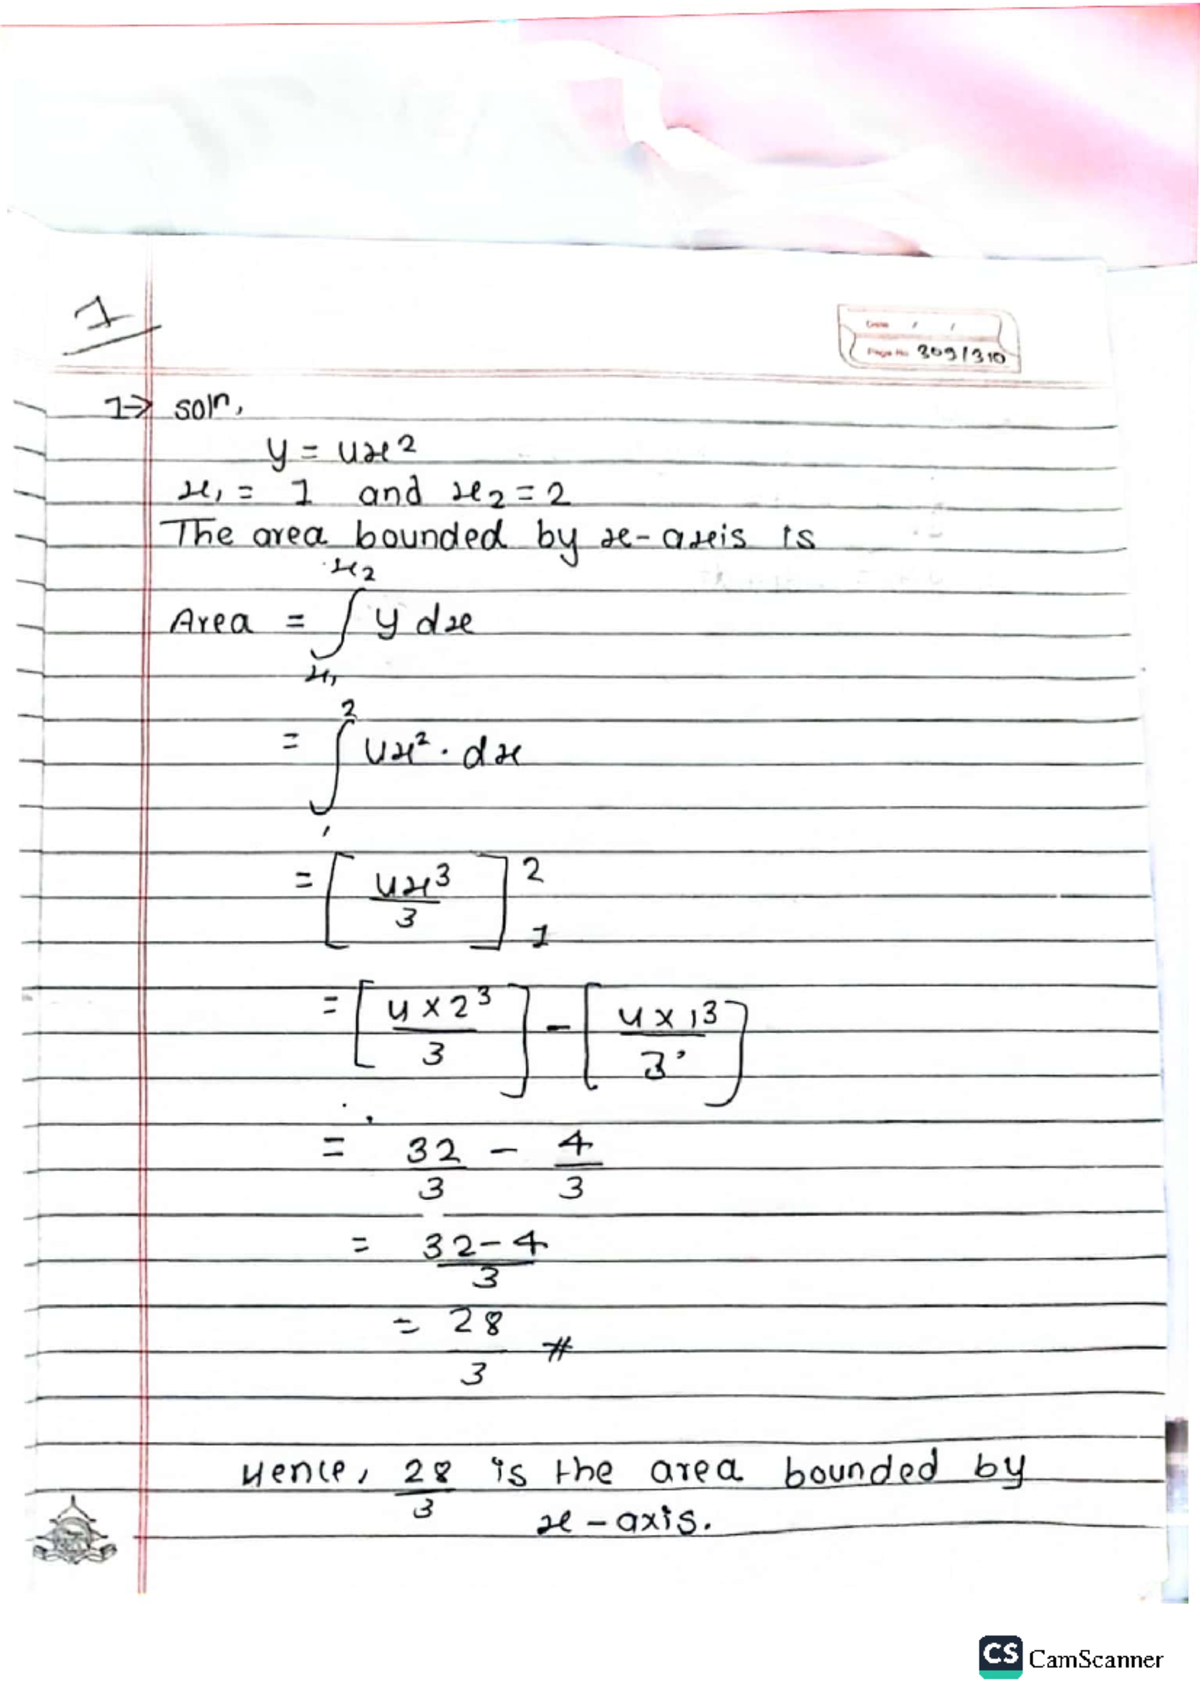 1
Date / /
Page No 309/310
1→ soln,
y = 4x²
x₁ = 1 and x₂ = 2
The area bounded by x-axis is
x₂
Area = ∫ y dx
x₁
2
= ∫ 4x² · dx
1
= [4x³/3]²₁
= [4×2³/3] - [4×1³/3]
= 32/3 - 4/3
= 32-4/3
= 28/3 #
Hence, 28/3 is the area bounded by
x-axis.
CS CamScanner